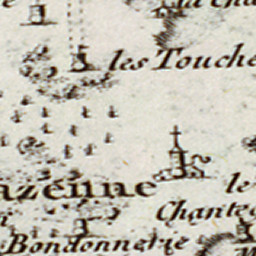 les Touche
azenne
le
Chante
Bondonnerie